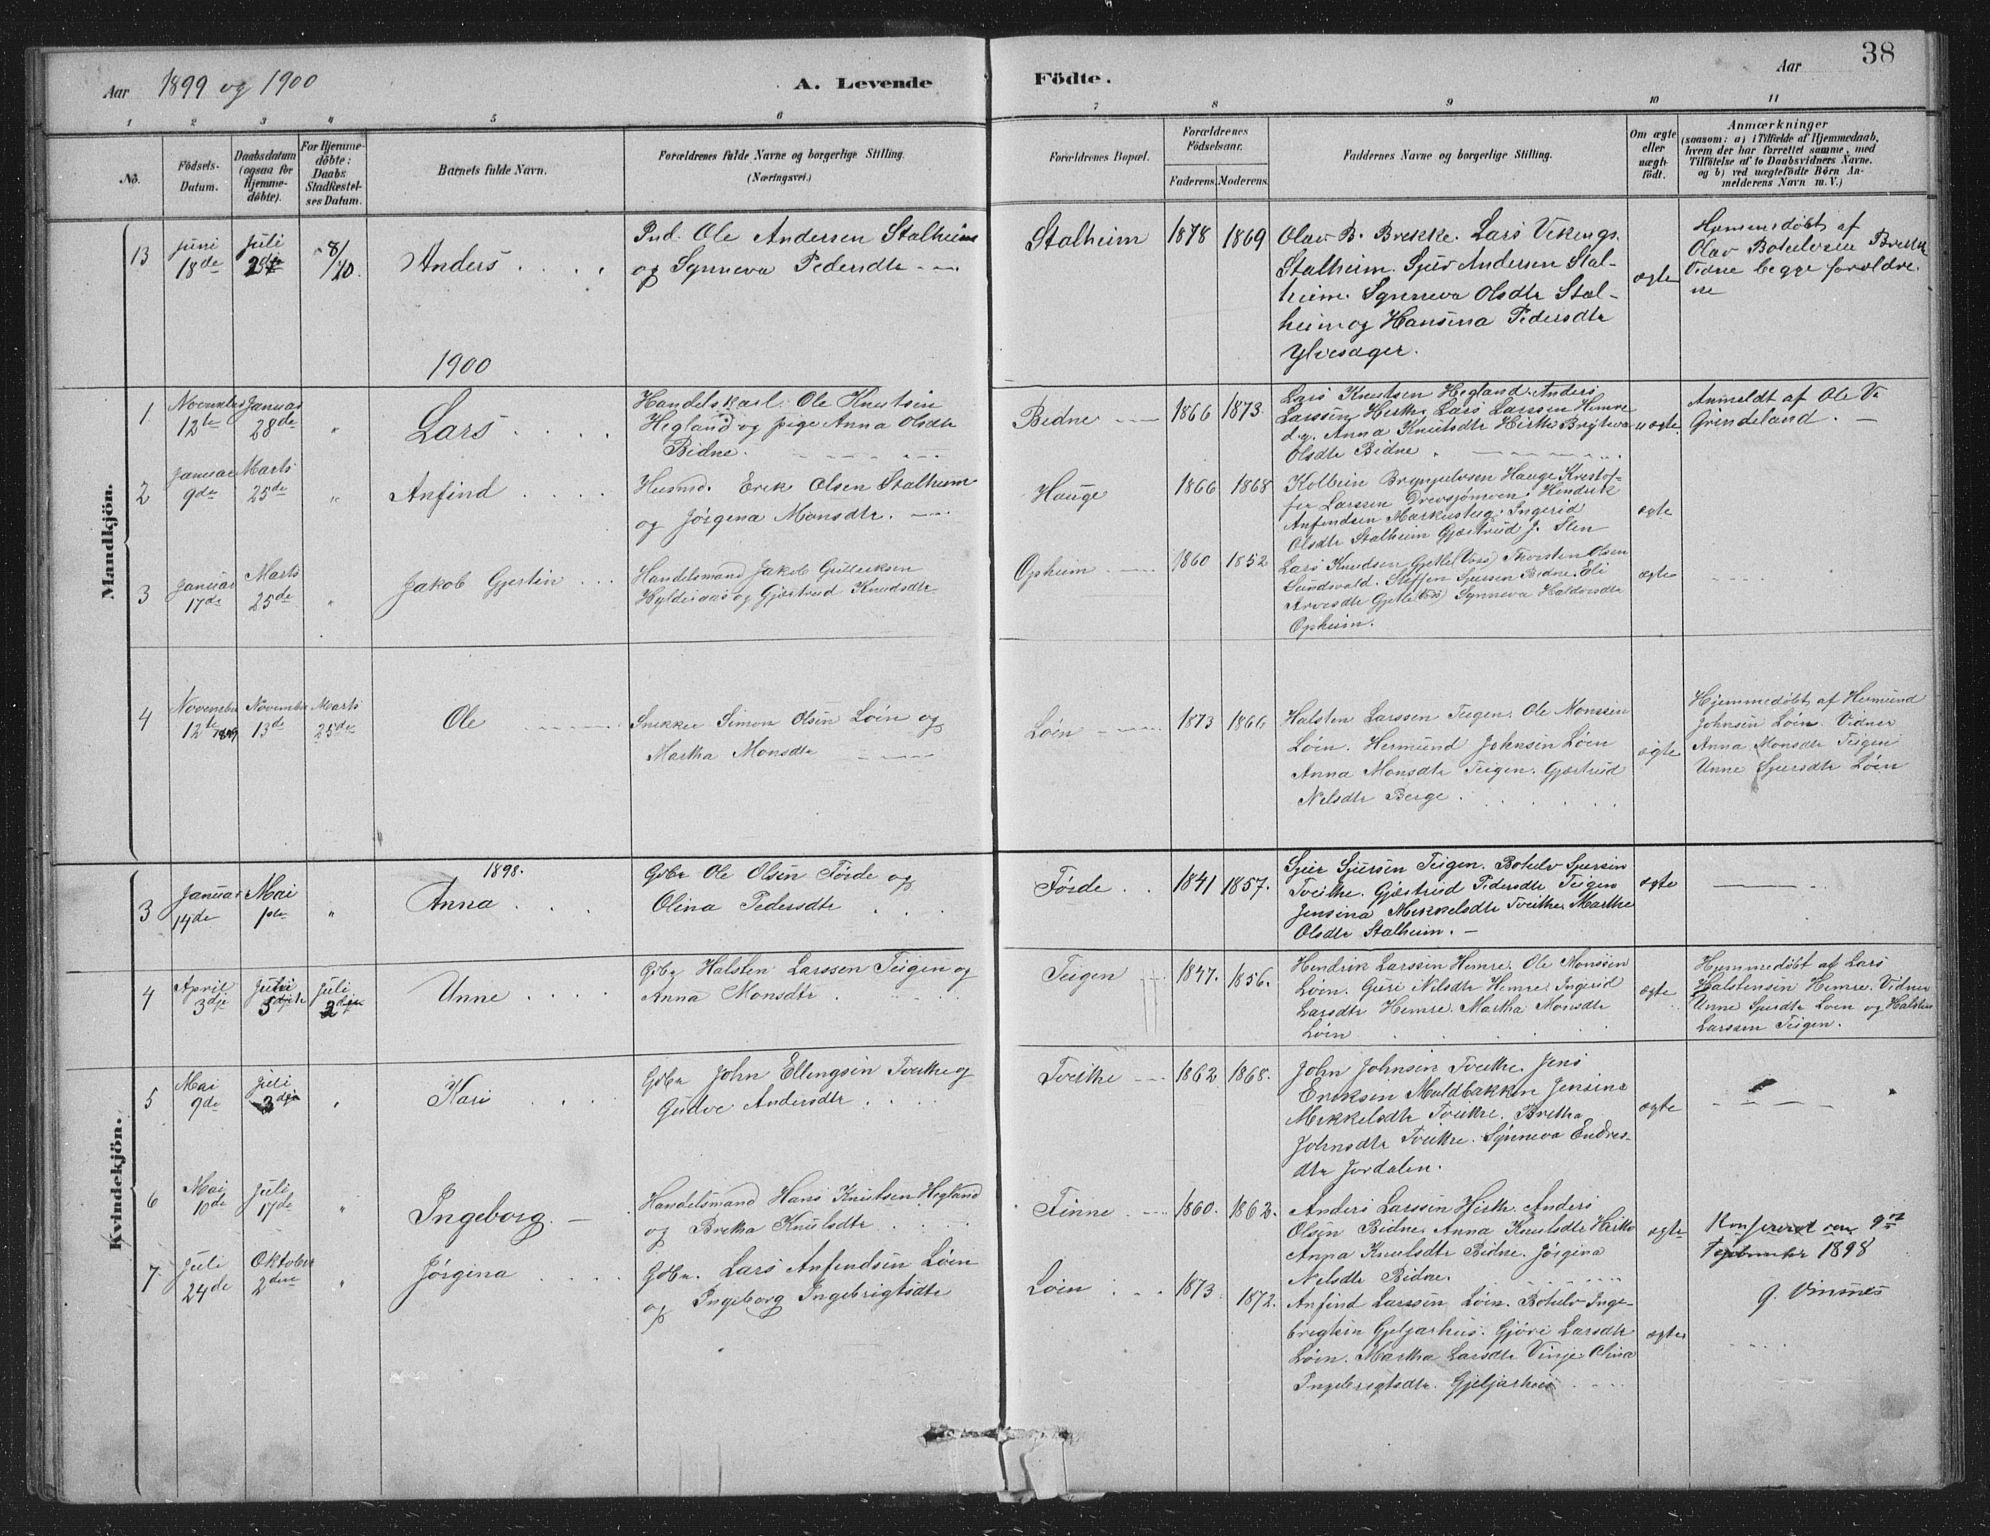 38
Aar 1899 og 1900 A. Levende Födte. Aar
1 2 3 4 5 6 7 8 9 10 11
No.
Födsels-
Datum.
Daabsdatum
(ogsaa for
Hjemme-
döbte).
For Hjemme-
döbte:
Daabs
Stadfæstel-
ses Datum.
Barnets fulde Navn.
Forældrenes fulde Navne og borgerlige Stilling.
(Næringsvei.)
Forældrenes Bopæl.
Forældrenes
Födselsaar.
Faderens. Moderens.
Faddernes Navne og borgerlige Stilling.
Om ægte
eller
uægte
födt.
Anmærkninger
(saasom: a) i Tilfælde af Hjemmedaab,
hvem der har forrettet samme, med
Tilföielse af to Daabsvidners Navne.
og b) ved uægtefödte Börn An-
melderens Navn m. V.)
Mandkjön.
13
Juni
18de
Juli
8/10.
Anders
Ole Andersen Stalheim
og Synneva Pedersdtr
Stalheim
1878 1869
Olav B. Brekke. Lars Vikings.
Stalheim. Sjur Andersen Stal-
heim. Synneva Olsdtr Stal-
heim og Hansina Pedersdtr
Ylvesager.
ægte
Olav Botulvsen Brekke
Vidne begge foreldre
ne
1900
1
November
12te
Januar
28de
"
Lars
Handelskarl Ole Knutsen
Hegland og pige Anna Olsdtr
Bidne.
Bidne
1866 1873.
Lars Knutsen Hegland. Anders
Larssen Hirth. Lars Larssen Hemre
d.y. Anna Knutsdtr Hirth Brytteva
Olsdtr Bidne.
uægte.
Anmeldt af Ole V.
Grindeland
2
Januar
9de
Marts
25de
"
Anfind
Husmd. Erik Olsen Stalheim
og Jörgina Monsdtr.
Hauge
1866 1868
Kolbein Brynjulvsen Hauge Kristof-
fer Larssen Hendrik
Anfindsen Markusteig. Ingerid
Olsdtr Stalheim Gjærtrud J. Flen
ægte
3
Januar
17de
Marts
25de
"
Jakob Gjertin
Handelsmand Jakob Gulleiksen
Hyldesaas og Gjærtrud Knudsdtr
Opheim
1860 1852
Lars Knudsen Gjelle (Vos) Thorsten Olsen
Sundsvald. Steffen Sjursen Bidne. Eli
Arvesdtr Gjelle (Vos) Synneva Haldorsdtr
Opheim.
ægte
4
November
12te 1899
November
13de
Marts
25de
Ole
Snekker Simon Olsen Löin og
Martha Monsdtr
Löin
1873 1866
Halsten Larssen Teigen. Ole Monssen
Löin. Hermund Johnsen Löin
Anna Monsdtr Teigen. Gjærtrud
Nilsdtr Berge.
ægte
Hjemmedöbt af Hermund
Johnsen Löin. Vidner
Anna Monsdtr Teigen
Unne Sjursdtr Löin
Kvindekjön.
1898.
3
Januar
14de
Mai
1ste
"
Anna
Gdbr Ole Olsen Förde og
Olina Pedersdtr
Förde
1841 1857.
Sjur Sjursen Teigen. Botulv Sjursen
Tveite. Gjærtrud Pedersdtr Teigen
Jensina Mikkelsdtr Tveite. Marthe
Olsdtr Stalheim.
ægte
4
April
3dje
Juli
Juli
3dje
Unne
Gdbr Halsten Larssen Teigen og
Anna Monsdtr
Teigen
1847. 1856.
Hendrik Larssen Hemre. Ole Monssen
Löin. Guri Nilsdtr Hemre. Ingerid
Larsdtr Hemre. Martha Monsdtr
Löin
ægte
Hjemmedöbt af Lars
Halstensen Hemre. Vidner
Unne Sjursdtr Löin og Halsten
Larssen Teigen.
5
Mai
9de
Juli
3dje
"
Kari
Gdbr John Ellingsen Tveite og
Gudve Andersdtr
Tveite
1862 1868.
John Johnsen Tveite. Jens
Eriksen Muldbakken Jensina
Mikkelsdtr Tveite. Britha
Johnsdtr Tveite. Synneva Endres-
dtr Jordalen.
ægte
6
Mai
10de
Juli
17de
"
Ingeborg.
Handelsmand Hans Knutsen Hegland
og Britha Knutsdtr
Finne
1860. 1862.
Anders Larssen Hirth. Anders
Olsen Bidne. Anna Knutsdtr Hirth
Anna Knutsdtr Bidne. Jörgina
Nilsdtr Bidne.
ægte
Konfereret den 9de
September 1898
G. Vinsnes
7
Juli
24de
Oktober
2den
"
Jörgina
Gdbr. Lars Anfindsen Löin
og Ingeborg Ingebrigtsdtr
Löin
1873. 1872.
Anfind Larssen Löin. Botulv Inge-
brigtsen Gjeljarhus. Gjöri Larsdtr
Löin. Martha Larsdtr Vinje. Olina
Ingebrigtsdtr. Gjeljarhus
ægte